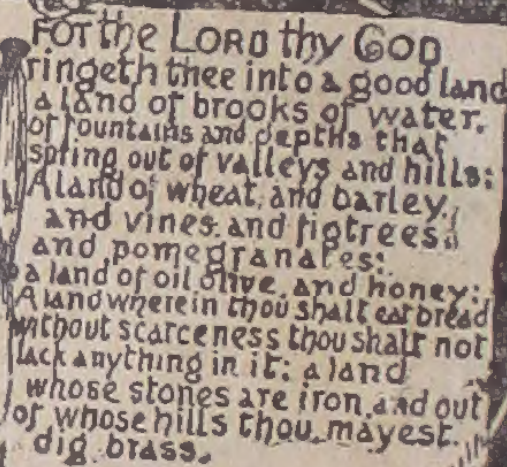 FOr the LORD thy GOD
ringeth thee into a good land
a land of brooks of water.
of fountains and depths that
spring out of valleys and hills:
A land of wheat, and barley,
and vines. and figtrees.
and pomegranates:
a land of oil olive, and honey:
A land wherein thou shalt eat bread
without scarceness thou shalt not
lack anything in it: a land
whose stones are iron, and out
of whose hills thou mayest.
dig brass.